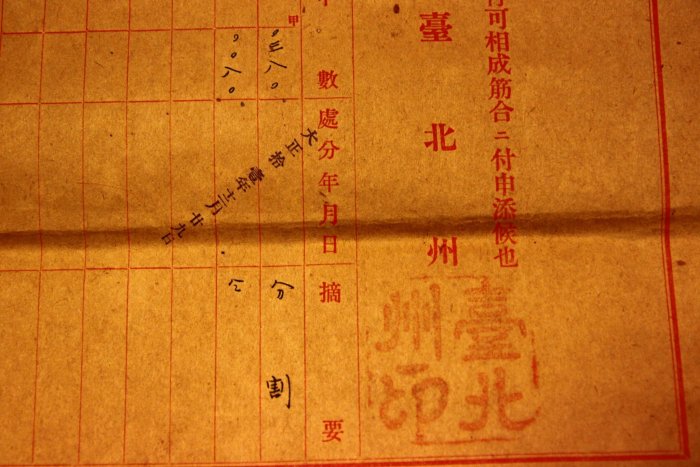 可相成筋合ニ付申添候也
臺北州
臺北州印
數
處分年月日
摘要
甲
〇三八〇
分割
〇〇八〇
仝
大正拾壹年十二月廿九日